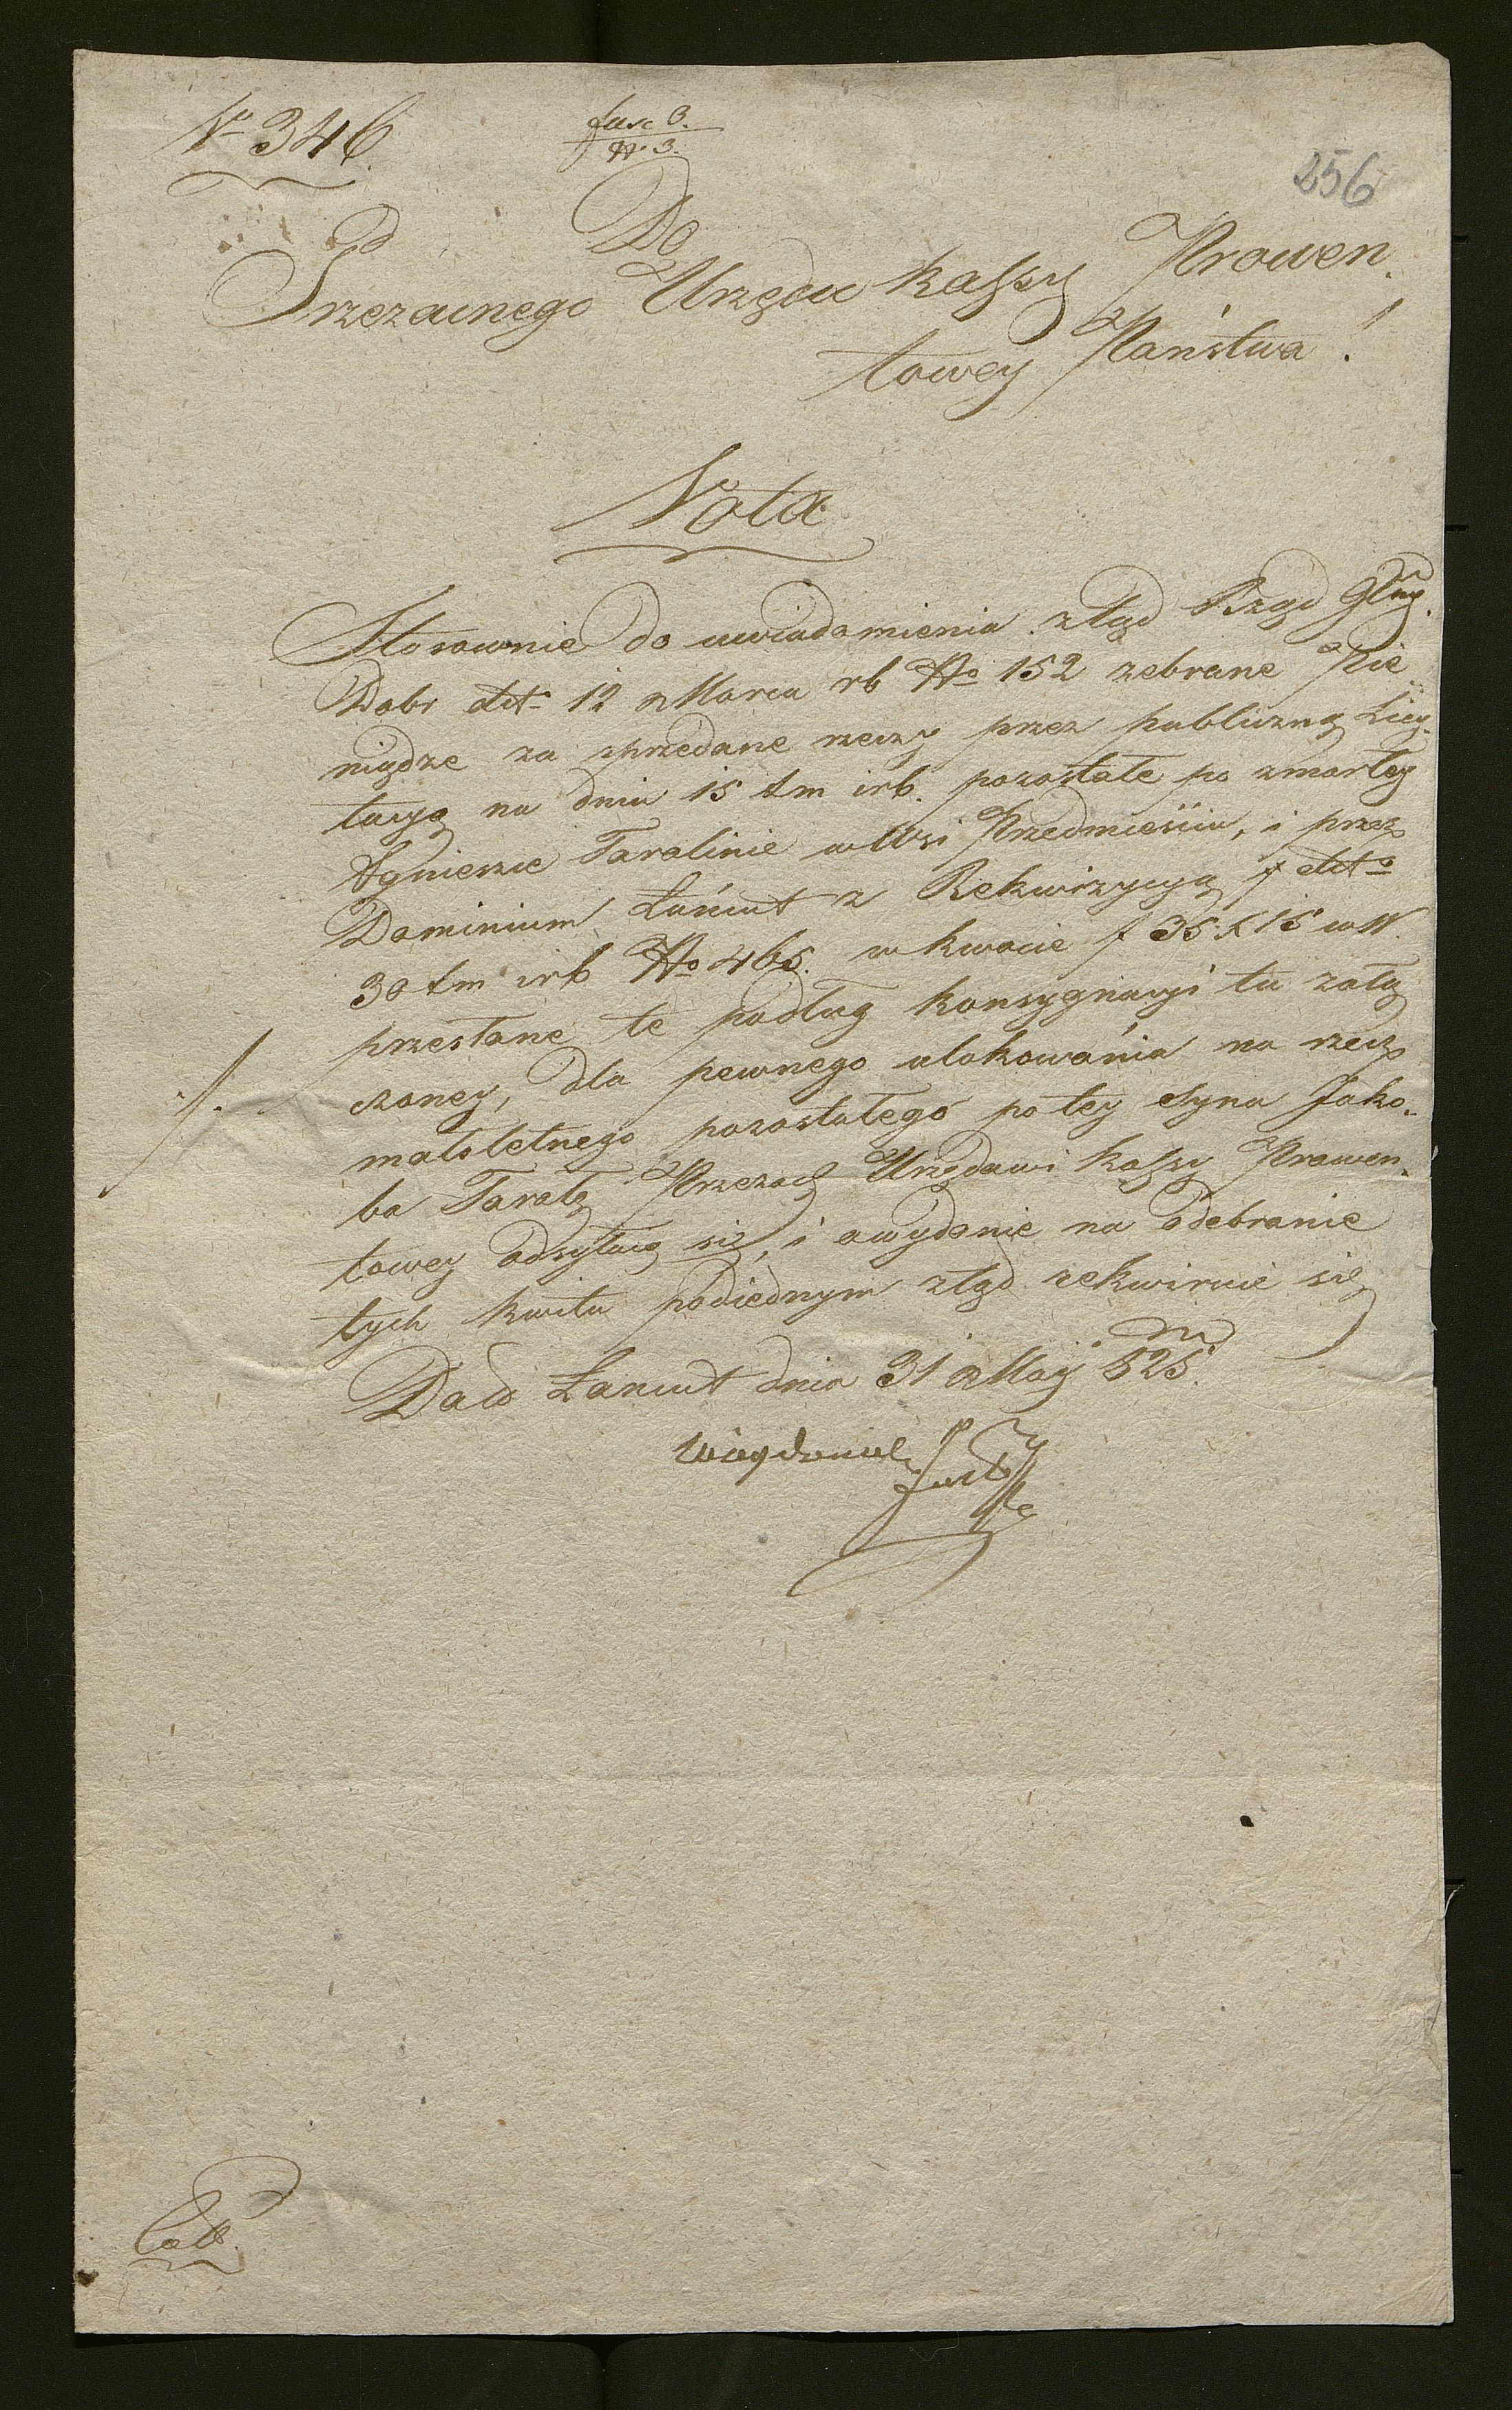 No 346.
fasc 3.
No 3.
256
Do
Przezacnego Urzędu Kassy Prowen.
towey Państwa!
Nota
Stosownie do uwiadomienia ztąd Rząd
Dobr dto 12 Marca rb No 152 zebrane Pie
niądze za sprzedane rzeczy przez publiczną Licy-
tacyą na dniu 15 tm irb. pozostałe po zmarłey
Agnieszce Taralinie w Wsi Przedmieściu, i przez
Dominium Łańcut z Rekwizycyą dto
30 tm irb No 465. w kwocie f 35 x 15 wW.
przesłane te podług konsygnacyi tu załą
./.
czoney, dla pewnego ulokowania na rzecz
małoletnego pozostałego po tey Syna Jako-
ba Tarałę Przezac Urzędowi Kassy Prowen-
towey odsyłaią się, i owydanie na odebranie
tych kwitu podiednym ztąd rekwiruie się
Dato Łancut dnia 31 May 825.
Just